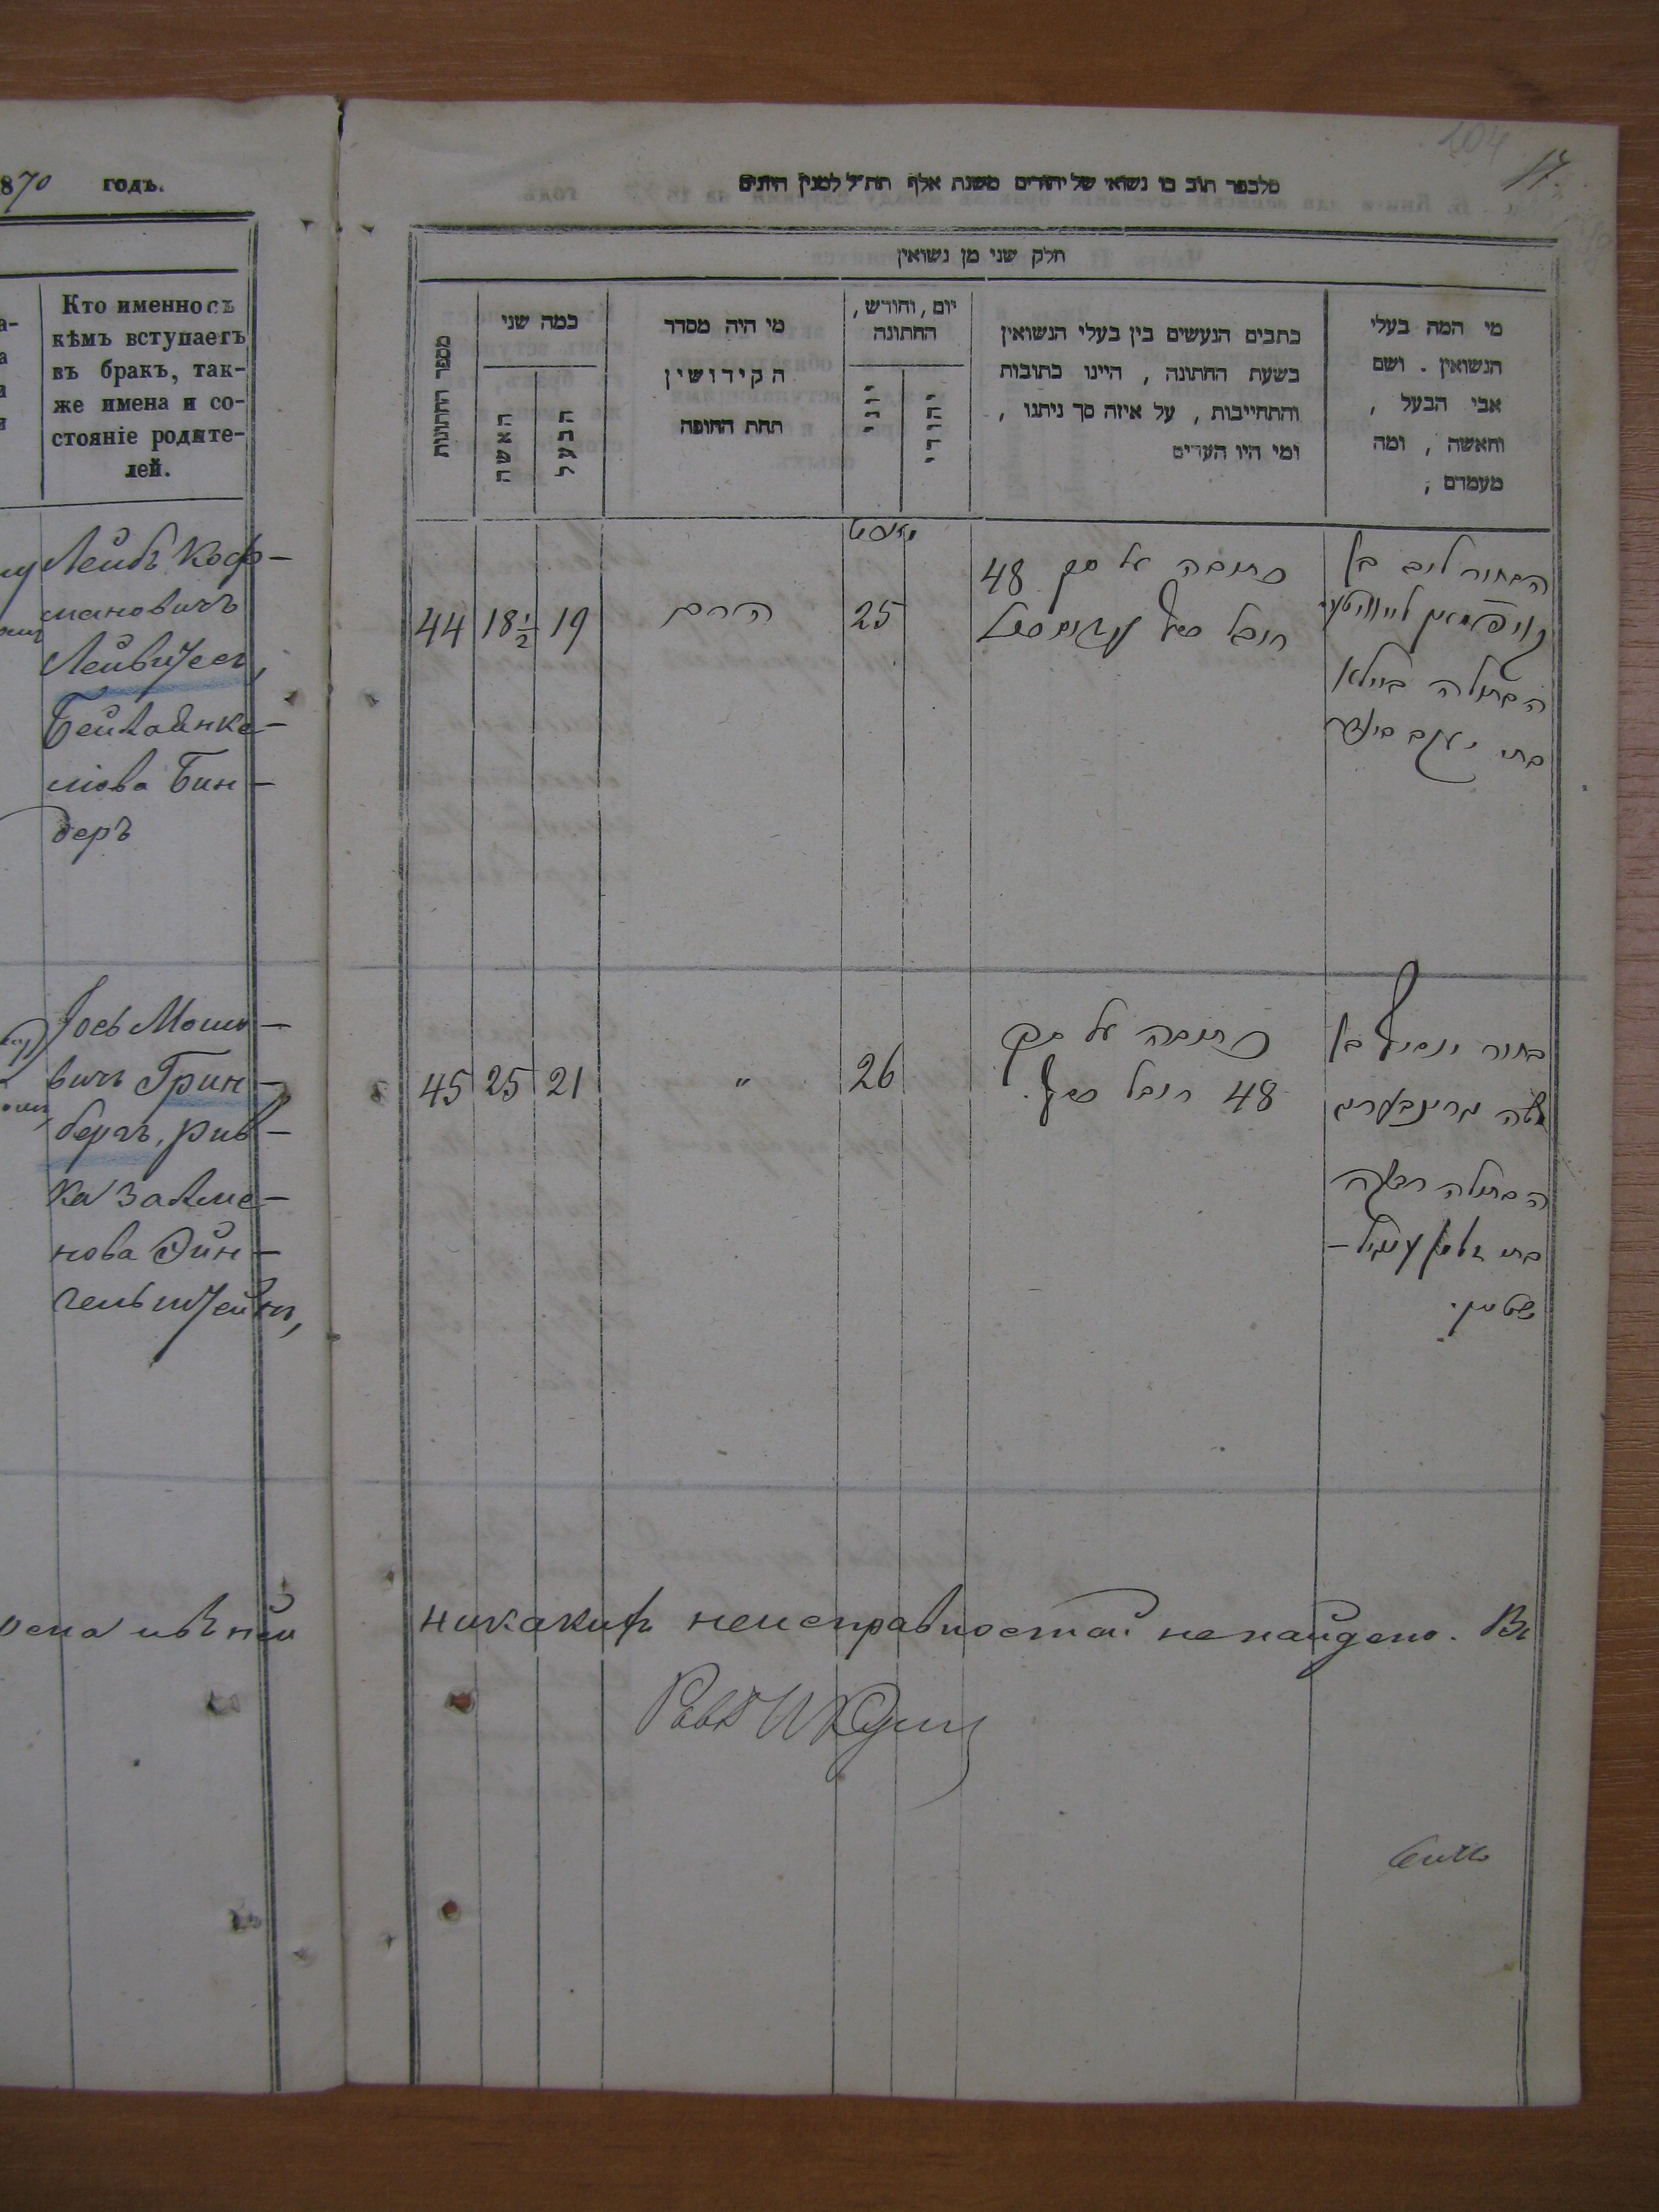 870 годъ.
Кто именно съ
кѣмъ вступаетъ
въ бракъ, так-
же имена и со-
стояніе родите-
лей.
Лейбъ Коф-
мановичъ
Лейвитесъ,
Бейла Янке-
лева Бин-
деръ
Іось Мошко-
вичъ Грин-
бергъ, Рив-
ка Залме-
нова Эйн-
гельштейнъ,
104
17.
חלק שני מן נשואין
מספר החתונות
כמה שני
האשה
הבעל
מי היה מסדר
הקידושין
תחת החופה
יום, וחודש,
החתונה
יוני
יהודי
כתבים הנעשים בין בעלי הנשואין
בשעת החתונה, היינו כתובות
והתחייבות, על איזה סך ניתנו,
ומי היו העדים
מי המה בעלי
הנשואין. ושם
אבי הבעל,
והאשה, ומה
מעמדם;
44 18½ 19 הרב 25
כתובה על סך 48
רובל כסף
הבחור ליב בן
קויפמאן לייוויטעס
הבתולה ביילא
בת יעקב בינדער
45 25 21 " 26
כתובה על סך
48 רובל כסף.
בחור יוסף בן
משה גרינבערג
הבתולה רבקה
בת זלמן ענגיל-
שטיין.
никакихъ неисправностей не найдено. Въ